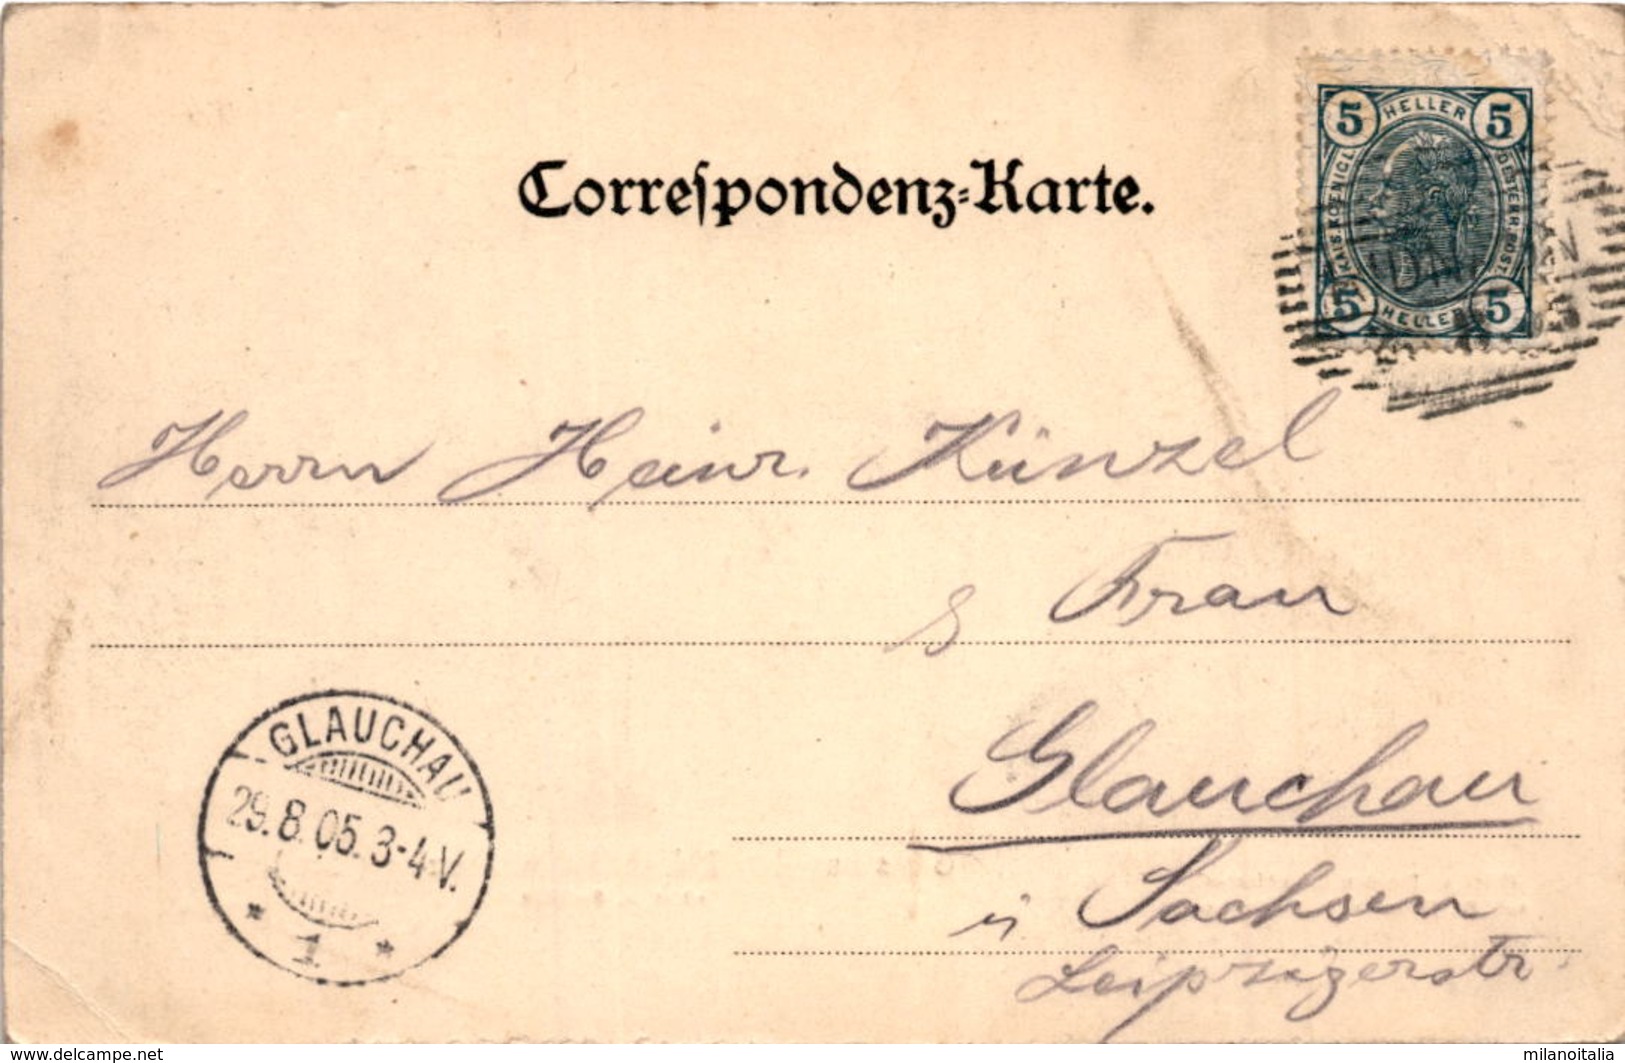 Correſpondenz-Karte.
5 HELLER 5
KAIS. KOENIGL. OESTERR. POST.
5 HELLER 5
Herrn Heinr. Künzel
& Frau
Glauchau
i/ Sachsen
Leipzigerstr.
GLAUCHAU
29.8.05. 3-4 V.
* 1 *
www.delcampe.net
milanoitalia